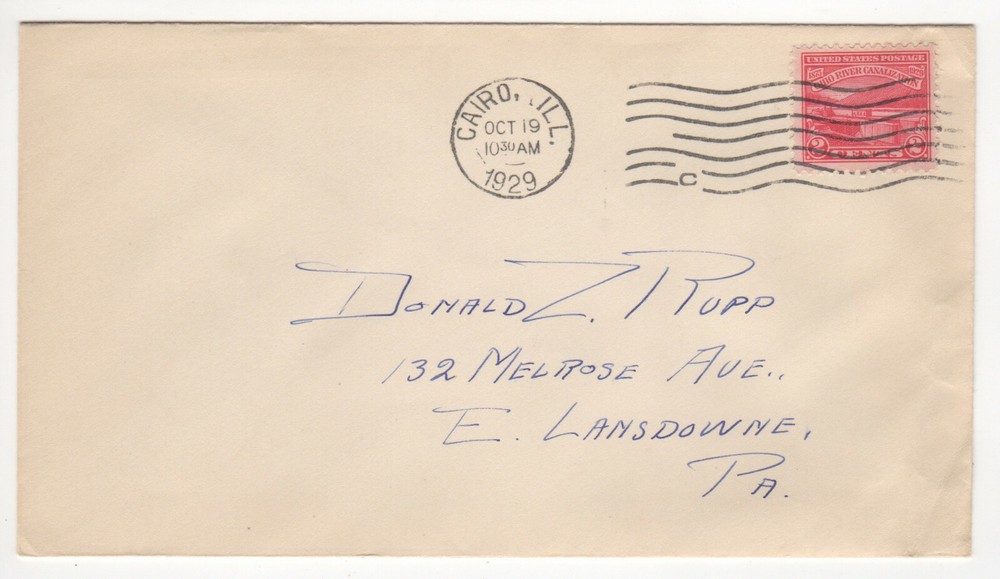 CAIRO, ILL.
OCT 19
10 30 AM
1929
C
UNITED STATES POSTAGE
1875 1929
OHIO RIVER CANALIZATION
2 CENTS 2
DONALD Z. RUPP
132 MELROSE AVE.,
E. LANSDOWNE,
PA.